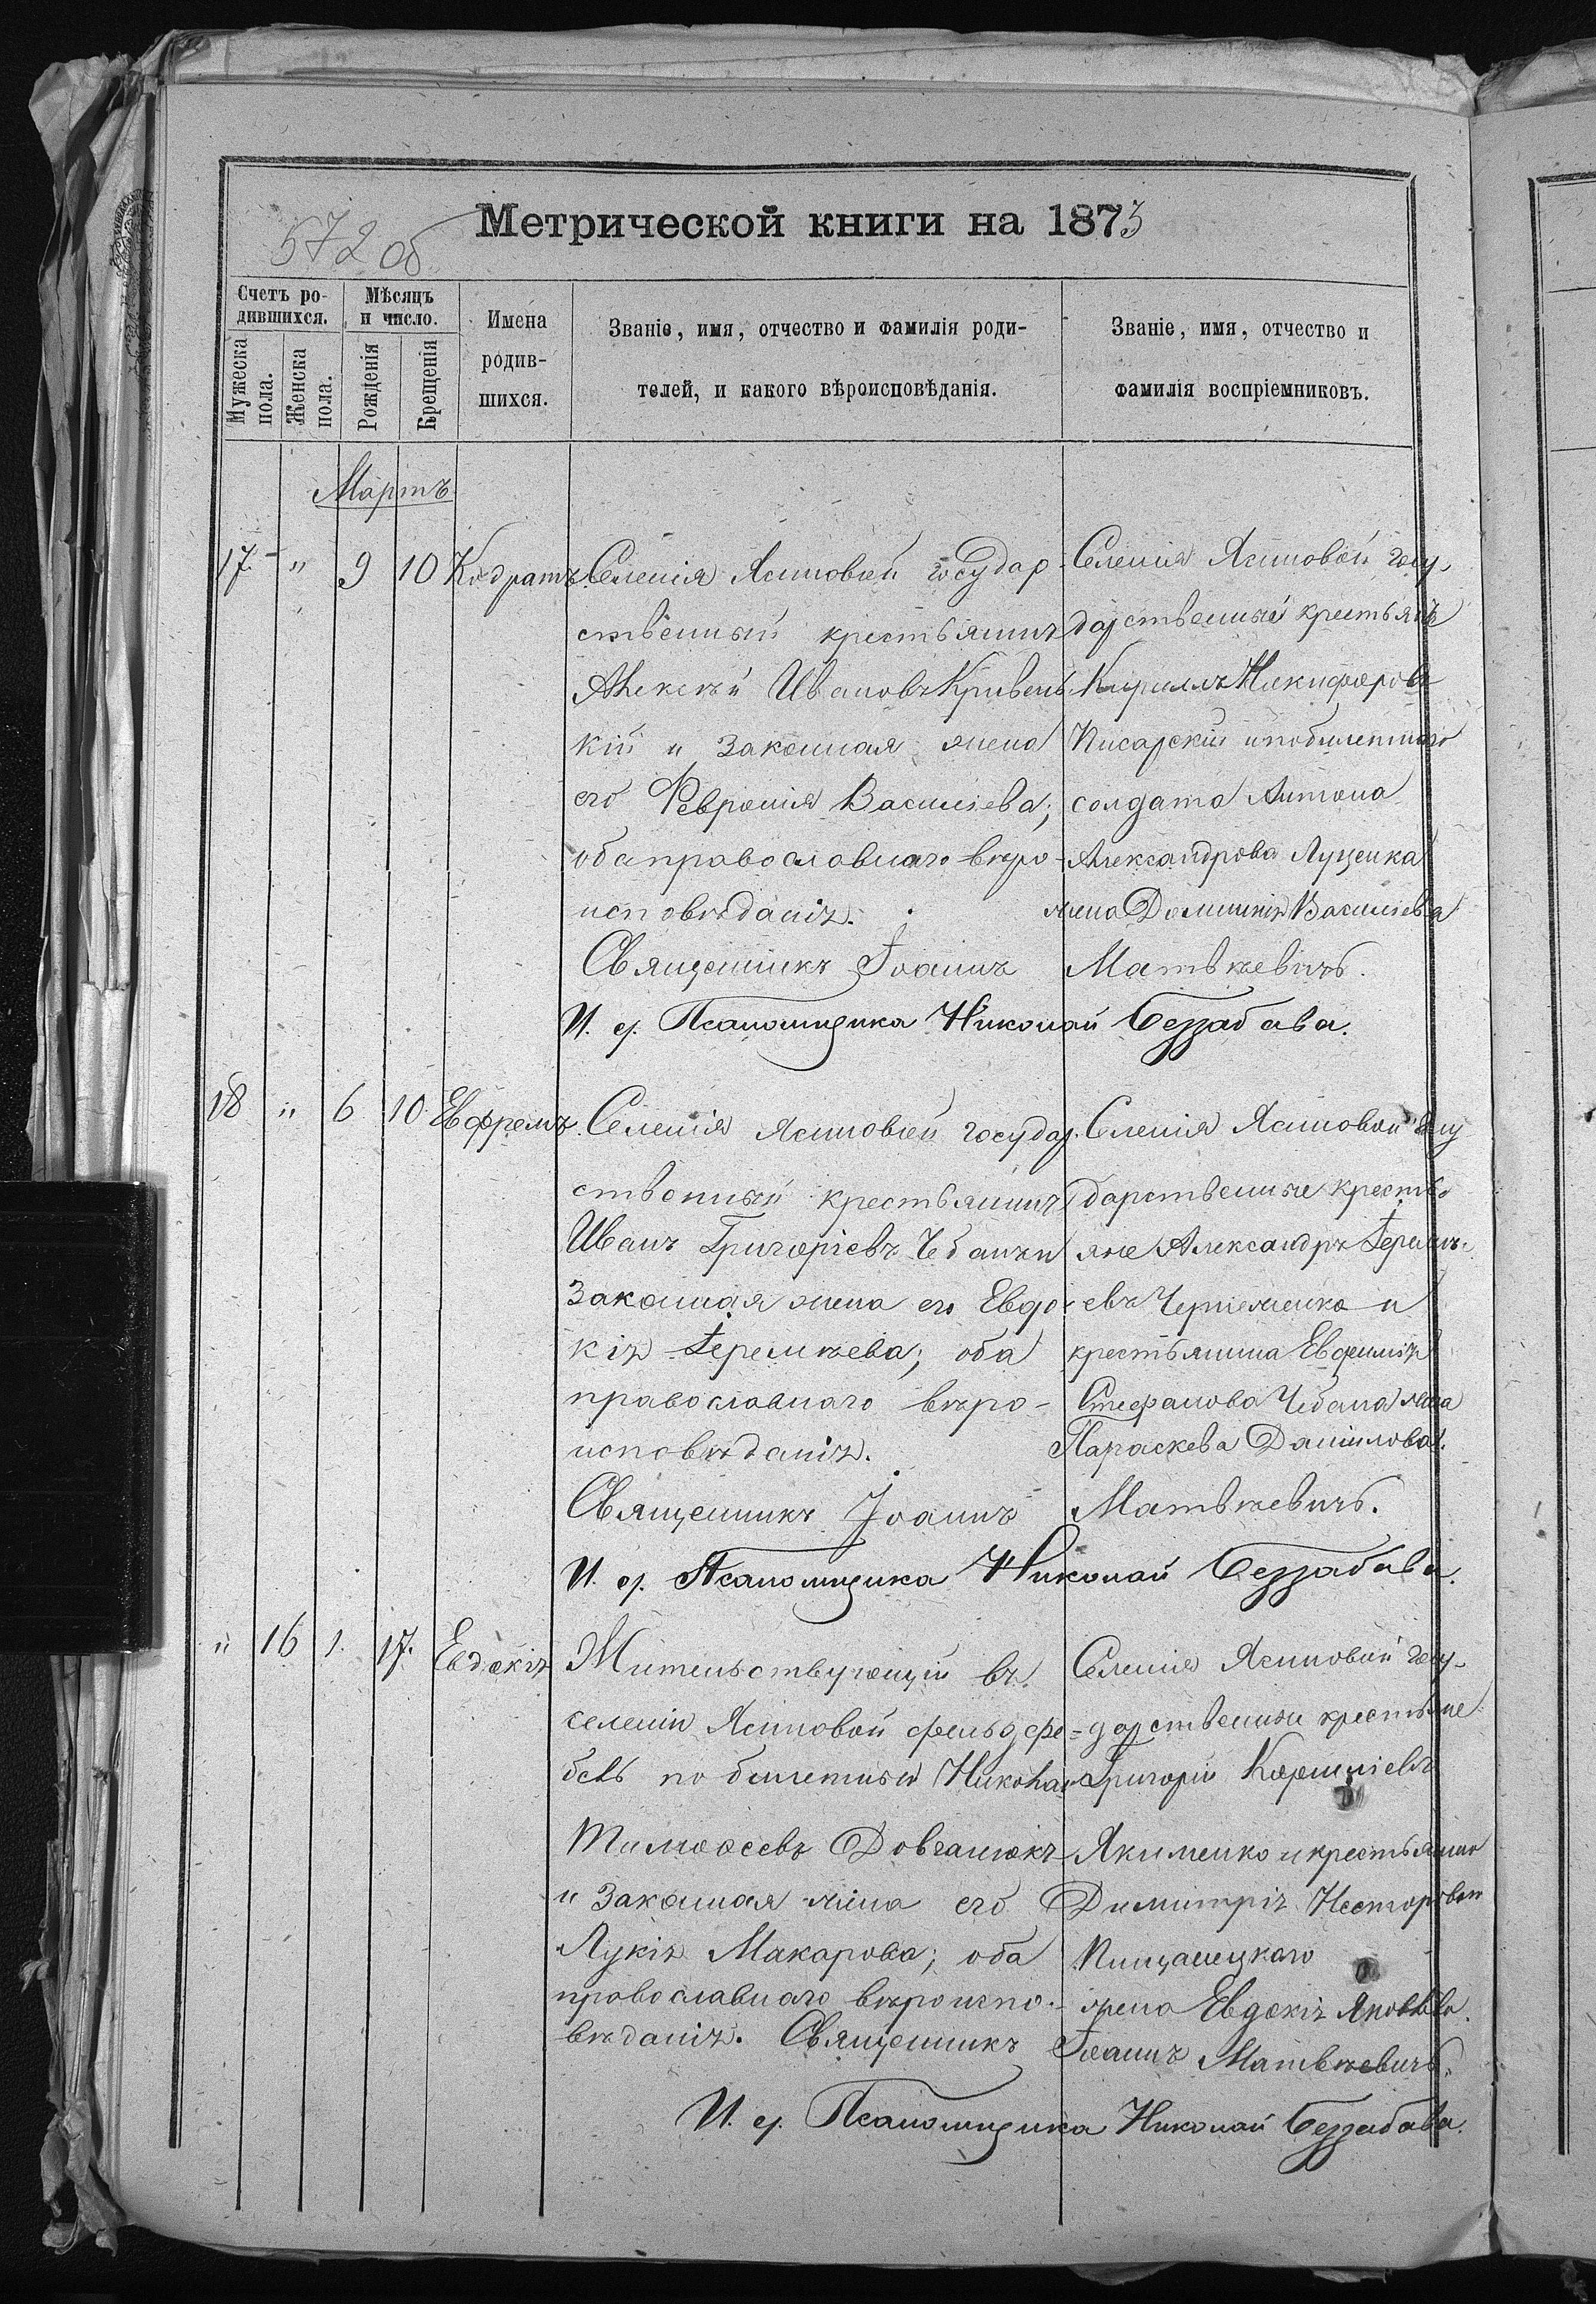 Метрической книги на 1873
572 об
Счетъ ро-
дившихся.
Мужеска пола.
Женска пола.
Мѣсяцъ
и число.
Рожденія
Крещенія
Имена
родив-
шихся.
Званіе, имя, отчество и фамилія роди-
телей, и какого вѣроисповѣданія.
Званіе, имя, отчество и
фамилія воспріемниковъ.
Мартъ
17. " 9 10 Кодратъ
Селенія Ясиновой государ-
ственный крестьянинъ
Алексѣй Ивановъ Кривень
кій и законная жена
его Февронія Василіева;
оба православнаго вѣро-
исповѣданія.
Селенія Ясиновой госу-
дарственный крестьянъ
Кириллъ Никифоровъ
Писарскій и побилетнаго
солдата Антона
Александрова Луценка
жена Домникія Василіева
Священникъ Іоаннъ Матвѣевичъ.
И. д. Псаломщика Николай Беззабава.
18 " 6 10 Евфремъ
Селенія Ясиновой государ-
ственный крестьянинъ
Иванъ Григоріевъ Чебанъ и
законная жена его Евдо-
кія Іеремѣева; оба
православнаго вѣро-
исповѣданія.
Селенія Ясиновой госу
дарственные кресть-
яне Александръ Іеремѣ-
евъ и
крестьянина Евфимія
Стефанова Чебана жена
Параскева Даниилова.
Священникъ Іоаннъ Матвѣевичъ.
И. д. Псаломщика Николай Беззабава.
" 16 1. 17. Евдокія
Жительствующій въ
селеніи Ясиновой фельдфе-
бель по билетный Николай
Тимофеевъ Довганюкъ
и законная жена его
Лукія Макарова; оба
православнаго вѣроиспо-
вѣданія.
Селенія Ясиновой госу-
дарственный крестьяне
Григорій Корниліевъ
Якименко и крестьянина
Димитрія Несторова
Пищанецкаго
жена Евдокія Яковлева.
Священникъ Іоаннъ Матвѣевичъ.
И. д. Псаломщика Николай Беззабава.